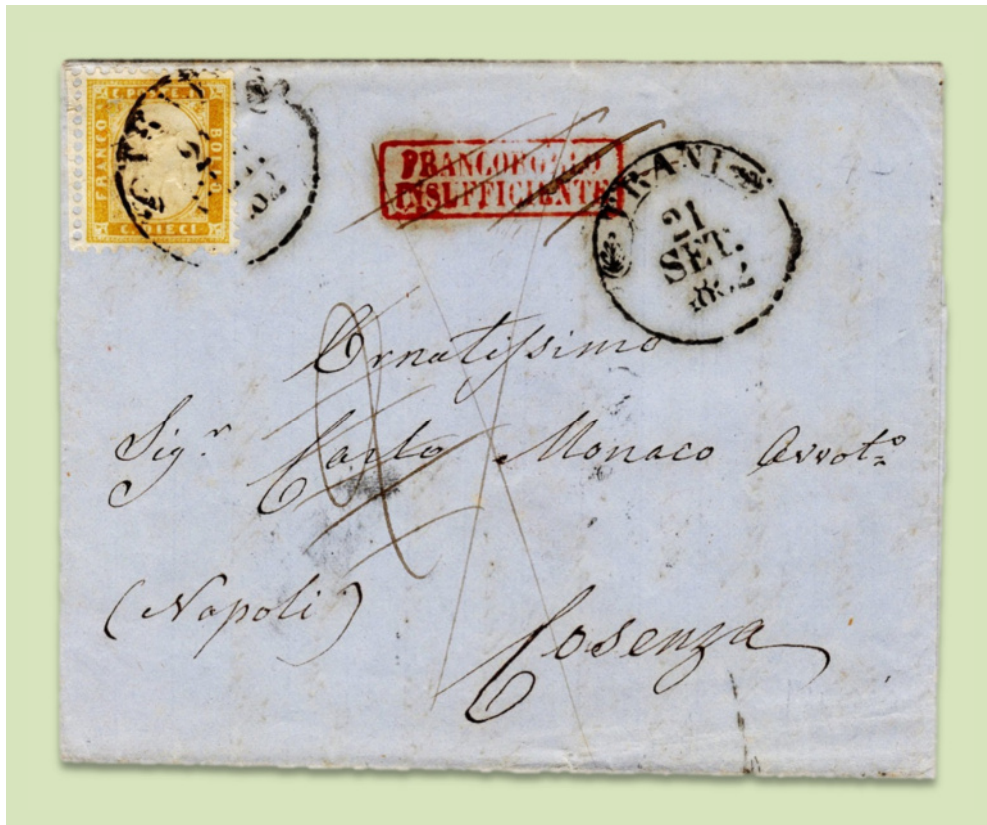 C. POSTE. 10
FRANCO
BOLLO
C. DIECI
FRANCOBOLLO
INSUFFICIENTE
TRANI
21
SET.
1862
Ornatissimo
Sig.r Carlo Monaco Avvot.o
(Napoli)
Cosenza